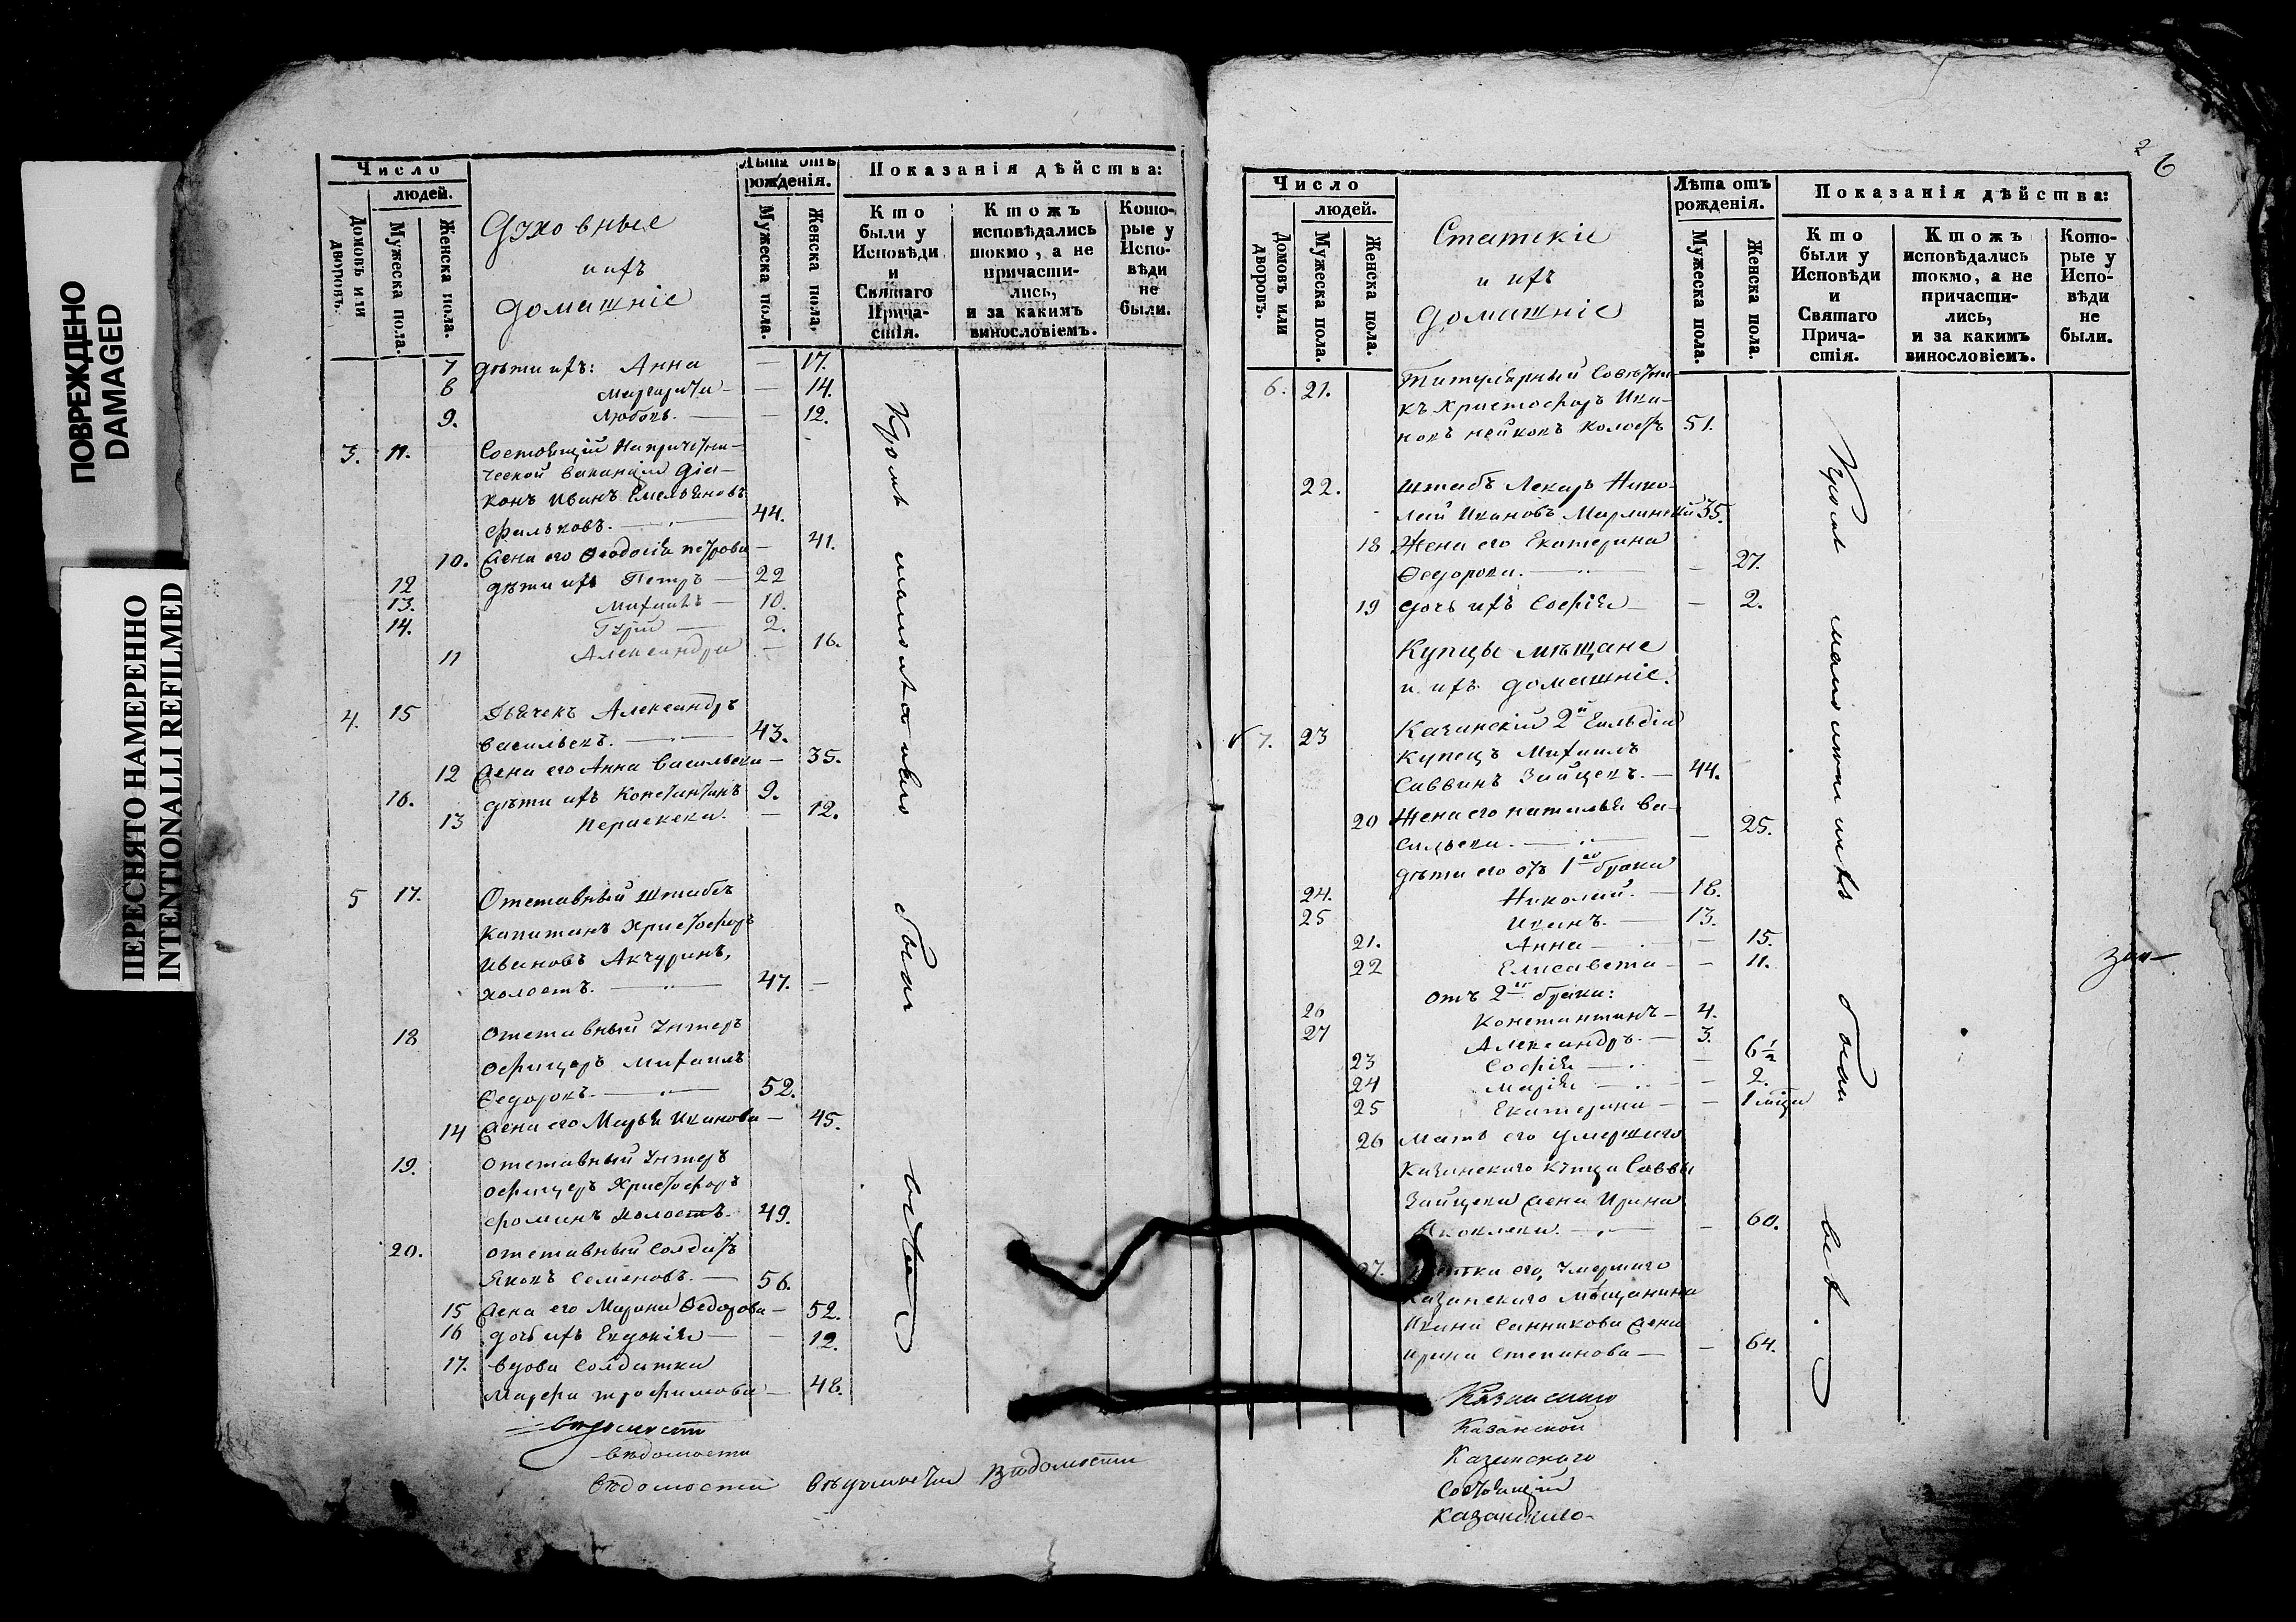 ПОВРЕЖДЕНО
DAMAGED
ПЕРЕСНЯТО НАМЕРЕННО
INTENTIONALLI REFILMED
Число
людей.
Домовъ или дворовъ.
Мужеска пола.
Женска пола.
Духовные
и ихъ
домашніе
Лѣта отъ
рожденія.
Мужеска пола.
Женска пола.
Показанія дѣйства:
Кто
были у
Исповѣди
и
Святаго
Прича-
стія.
Ктожъ
исповѣдались
токмо, а не
причасти-
лись,
и за какимъ
винословіемъ.
Кото-
рые у
Испо-
вѣди
не
были.
7 дѣти ихъ: Анна — 17.
8 Маргарита — — 14.
9. Любовь. — — 12.
3. 11. Состоящій на причетни-
ческой вакансіи Діа-
конъ Иванъ Емельяновъ
Фальковъ. — 44.
10. Жена его Феодосія Петрова — 41.
12 дѣти ихъ Петръ — 22
13. Михаилъ — 10.
14. Гурій — 2.
11 Александра — 16.
4. 15 Дьячекъ Александръ
Васильевъ. — 43.
12 Жена его Анна Васильева — 35.
16. дѣти ихъ Константинъ 9.
13 Параскева. — 12.
5 17. Отставный Штабсъ
Капитанъ Христофоръ
Ивановъ Акчуринъ,
холостъ. — 47. —
18 Отставный Унтеръ
Офицеръ Михаилъ
Федоровъ. — 52.
14 Жена его Марья Иванова — 45.
19. Отставный Унтеръ
офицеръ Христофоръ
Фоминъ холостъ. 49.
20. отставный Солдатъ
Яковъ Семеновъ. — 56.
15 Жена его Марина Федорова — 52.
16 дочь ихъ Евдокія — — 12.
17. вдова Солдатка
Марфа Трофимова — 48.
Кромѣ малолѣтнаго были
вѣдомости
вѣдомости вѣдомости Вѣдомости
2 6
Число
людей.
Домовъ или дворовъ.
Мужеска пола.
Женска пола.
Статскіе
и ихъ
домашніе
Лѣта отъ
рожденія.
Мужеска пола.
Женска пола.
Показанія дѣйства:
Кто
были у
Исповѣди
и
Святаго
Прича-
стія.
Ктожъ
исповѣдались
токмо, а не
причасти-
лись,
и за какимъ
винословіемъ.
Кото-
рые у
Испо-
вѣди
не
были.
6. 21. Титулярный Совѣтни-
къ Христофоръ Ива-
новъ холостъ 51.
22. Штабъ Лекарь Нико-
лай Ивановъ 35.
18 Жена его Екатерина
Федорова. — — 27.
19 дочь ихъ Софія — — 2.
Купцы мѣщане
и ихъ домашніе.
7. 23 Казанскій 2й Гильдіи
Купецъ Михаилъ
Саввинъ Зайцевъ. — 44.
20 Жена его Наталья Ва-
сильева. — — 25.
дѣти его отъ 1го брака
24. Николай. — 18.
25 Иванъ. — 13.
21. Анна — — 15.
22 Елисавета — — 11.
отъ 2го брака:
26 Константинъ — 4.
27 Александръ. — 3.
23 Софія — — 6½
24 Марія — — 2.
25 Екатерина — — 1 мѣсца
26 Мать его умершаго
Казанскаго купца Саввы
Зайцева жена Ирина
Яковлева. — — 60.
27. тетка его, умершаго
Казанскаго мѣщанина
Ивана Санникова жена
Ирина Степанова — — 64.
Кромѣ малолѣтныхъ были всѣ.
Казанскаго
Казанской
Казанскаго
Состоящій
Казанскаго